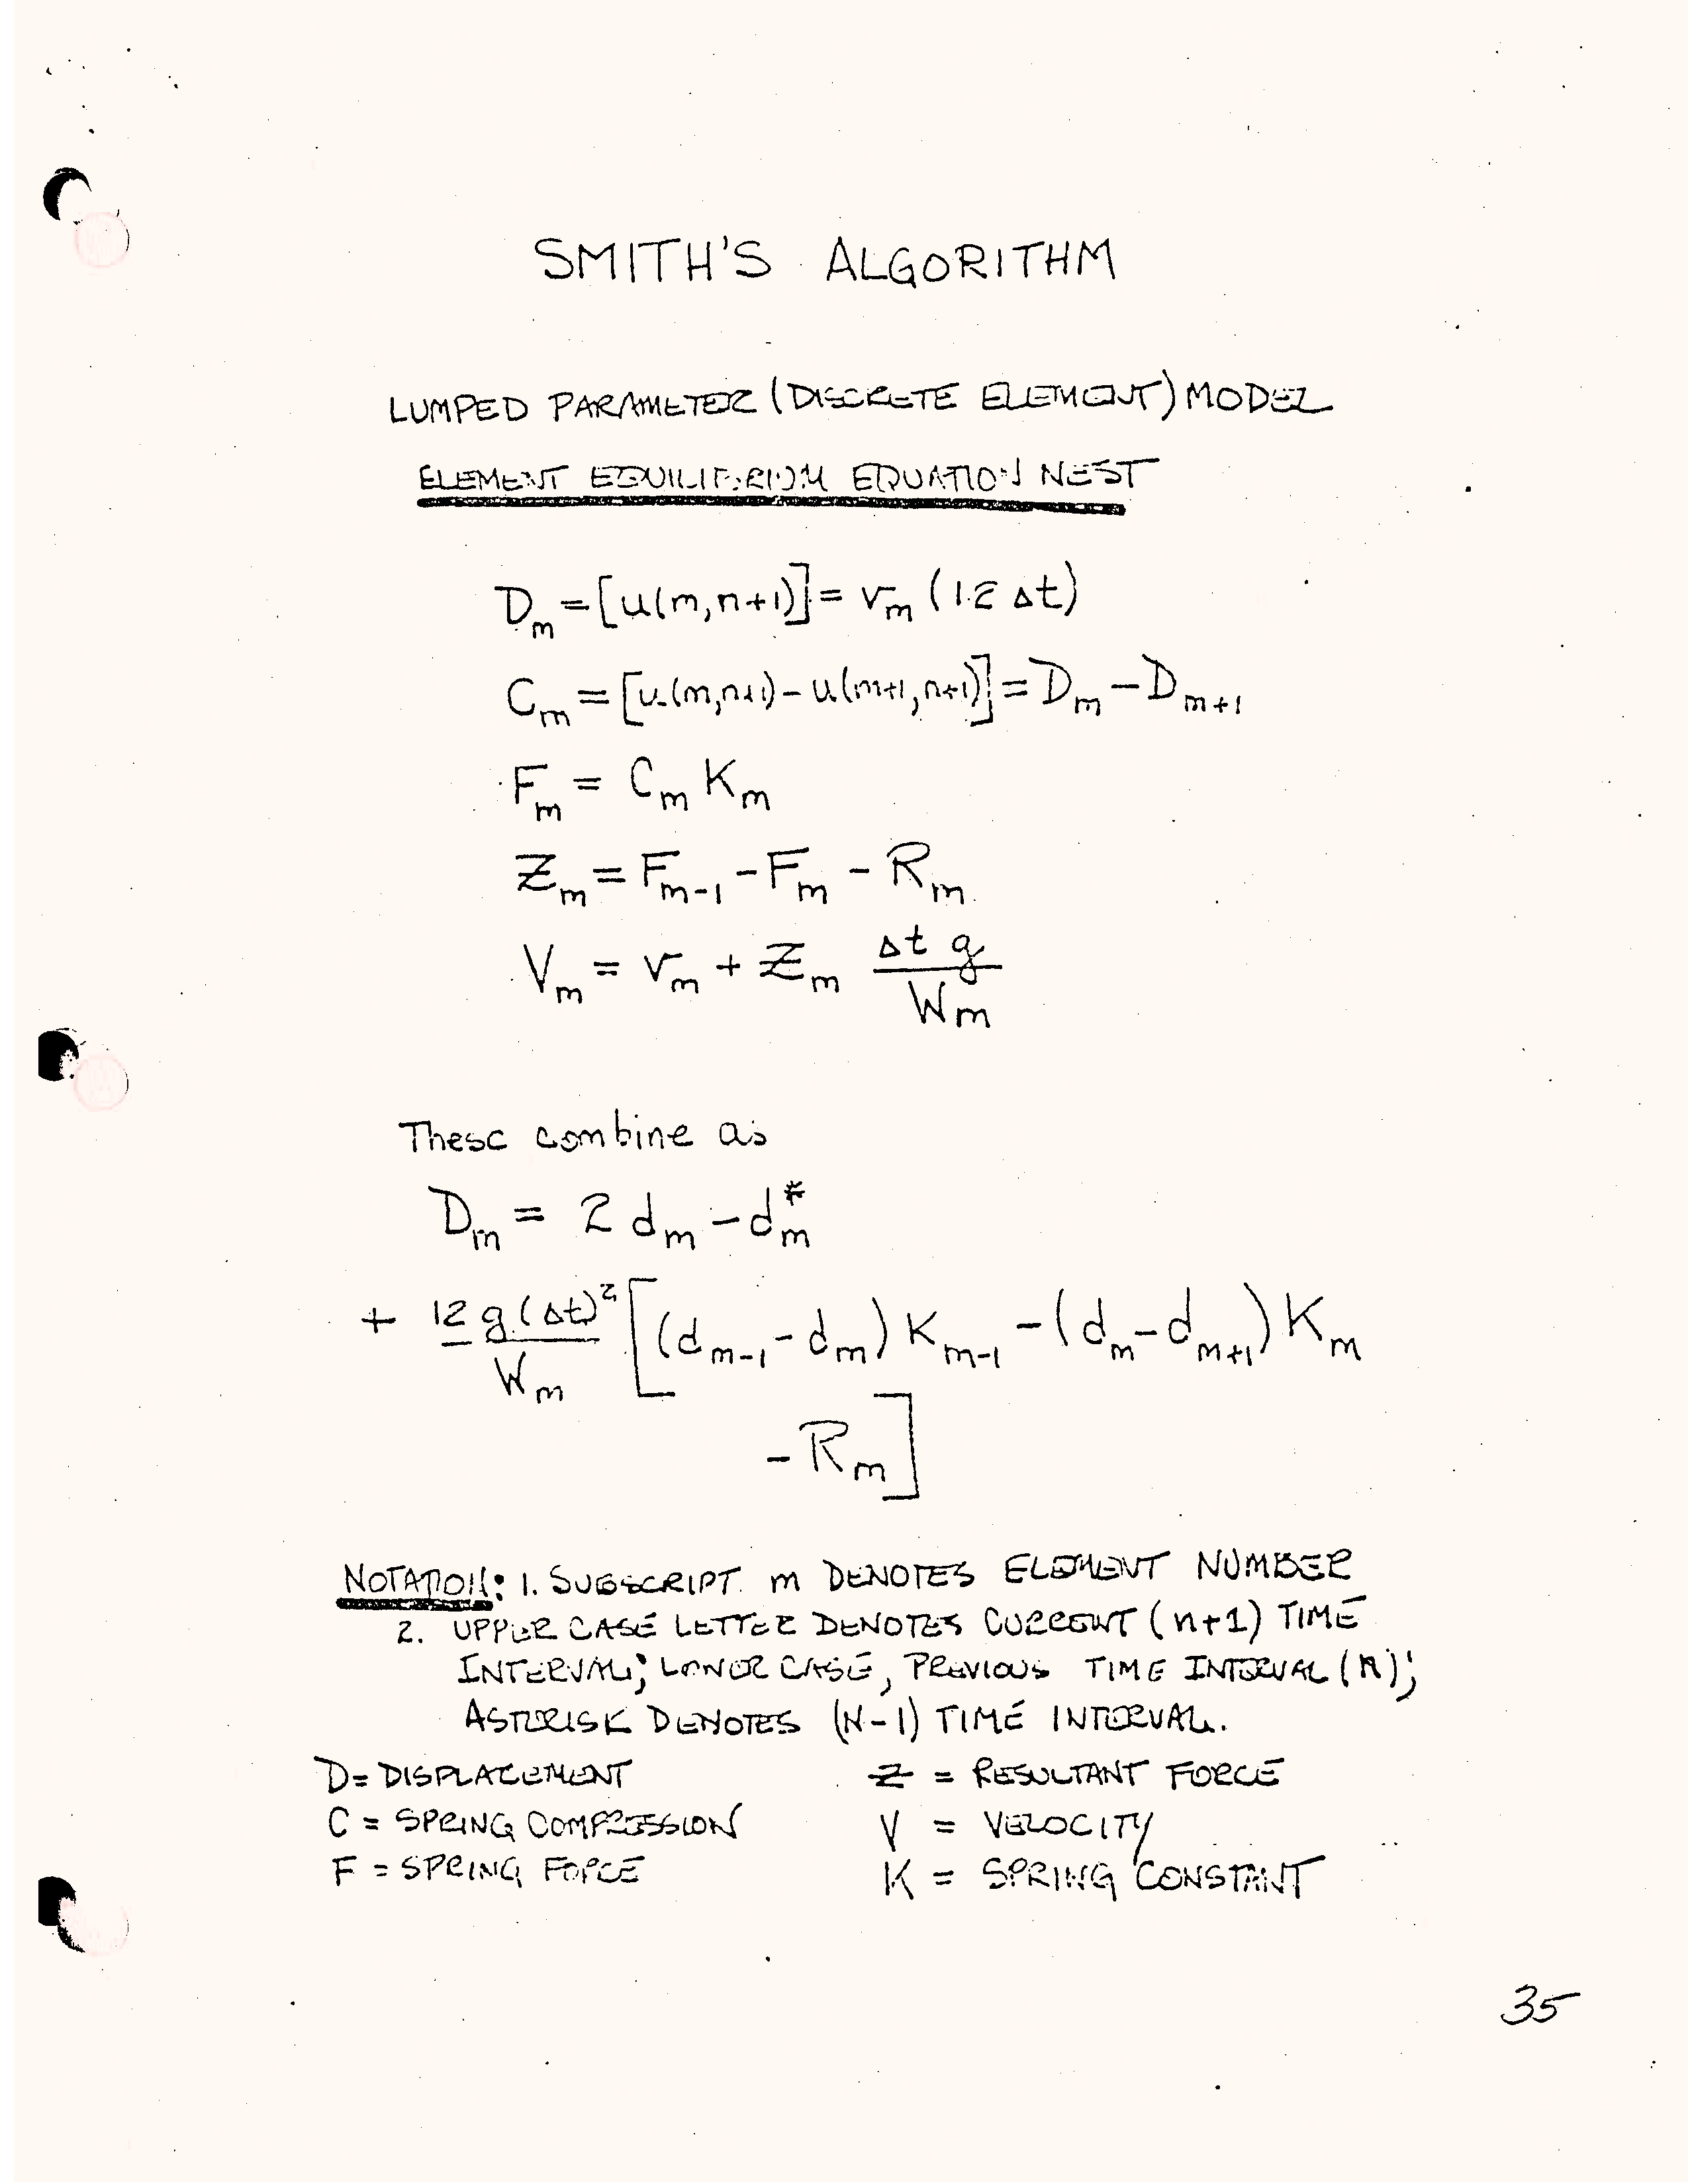 SMITH'S ALGORITHM
LUMPED PARAMETER (DISCRETE ELEMENT) MODEL
ELEMENT EQUILIBRIUM EQUATION NEST
D_m = [u(m,n+1)] = v_m (12 Δt)
C_m = [u(m,n+1) - u(m+1,n+1)] = D_m - D_{m+1}
F_m = C_m K_m
Z_m = F_{m-1} - F_m - R_m
V_m = v_m + Z_m \frac{Δt g}{W_m}
These combine as
D_m = 2 d_m - d_m^*
+ \frac{12 g (Δt)^2}{W_m} [(d_{m-1} - d_m) K_{m-1} - (d_m - d_{m+1}) K_m
- R_m]
NOTATION: 1. SUBSCRIPT m DENOTES ELEMENT NUMBER
2. UPPER CASE LETTER DENOTES CURRENT (n+1) TIME
INTERVAL; LOWER CASE, PREVIOUS TIME INTERVAL (n);
ASTERISK DENOTES (N-1) TIME INTERVAL.
D = DISPLACEMENT Z = RESULTANT FORCE
C = SPRING COMPRESSION V = VELOCITY
F = SPRING FORCE K = SPRING CONSTANT
35